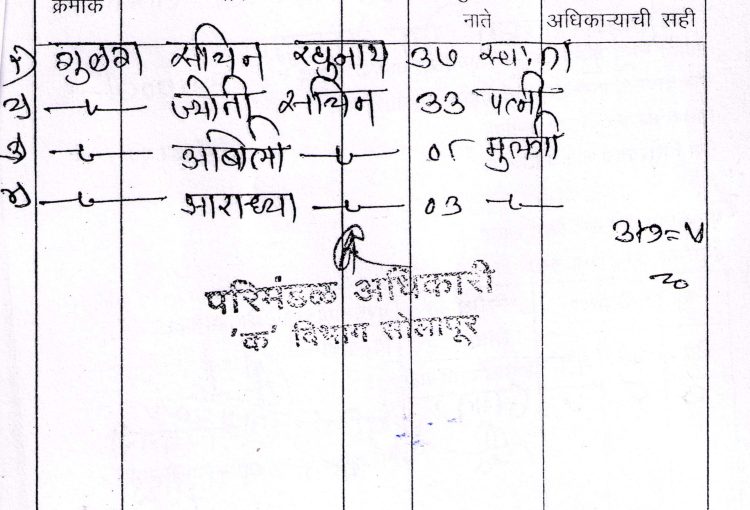 क्रमांक नाते अधिकाऱ्याची सही
१) सचिन रघुनाथ ३७ स्वतः
२) —"— ज्योती सचिन ३३ पत्नी
३) —"— अंबिली —"— ०८ मुलगी
४) —"— आराध्या —"— ०३ —"—
परिमंडळ अधिकारी
'क' विभाग सोलापूर